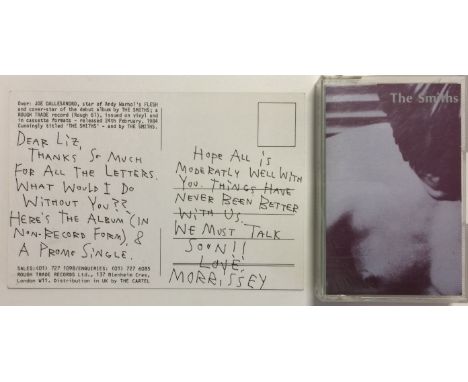 Over: JOE DALLESANDRO, star of Andy Warhol's FLESH
and cover-star of the debut album by THE SMITHS; a
ROUGH TRADE record (Rough 61), issued on vinyl and
in cassette formats - released 24th February, 1984
Cunningly titled 'THE SMITHS' - and by THE SMITHS.
DEAR LIZ,
THANKS SO MUCH
FOR ALL THE LETTERS.
WHAT WOULD I DO
WITHOUT YOU??
HERE'S THE ALBUM (IN
NON-RECORD FORM), &
A PROMO SINGLE.
SALES:(01) 727 1098/ENQUIRIES: (01) 727 6085
ROUGH TRADE RECORDS Ltd., 137 Blenheim Cres,
London W11. Distribution in UK by THE CARTEL
HOPE ALL IS
MODERATLY WELL WITH
YOU. THINGS HAVE
NEVER BEEN BETTER
WITH US.
WE MUST TALK
SOON!!
LOVE
MORRISSEY
The Smiths